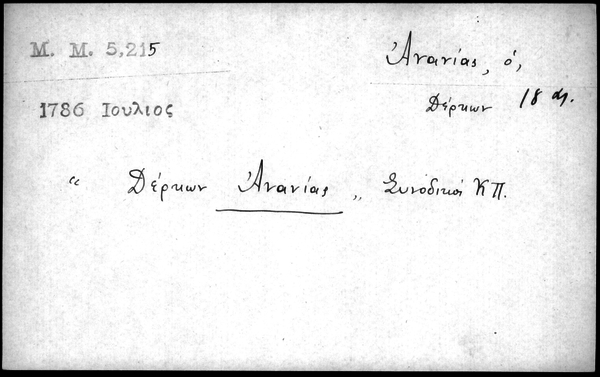 Μ. Μ. 5,215
Ἀνανίας, ὁ,
Δέρκων 18 αι.
1786 Ιουλιος
“ Δέρκων Ἀνανίας „ Συνοδικοί ΚΠ.